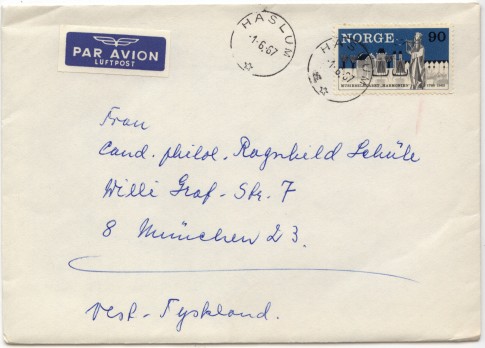 PAR AVION
LUFTPOST
HASLUM
-1.6.67
HASLUM
-1.6.67
NORGE 90
Frau
Cand. philol. Ragnhild Schüle
Willi Graf-Str. 7
8 München 23.
Vest-Tyskland.